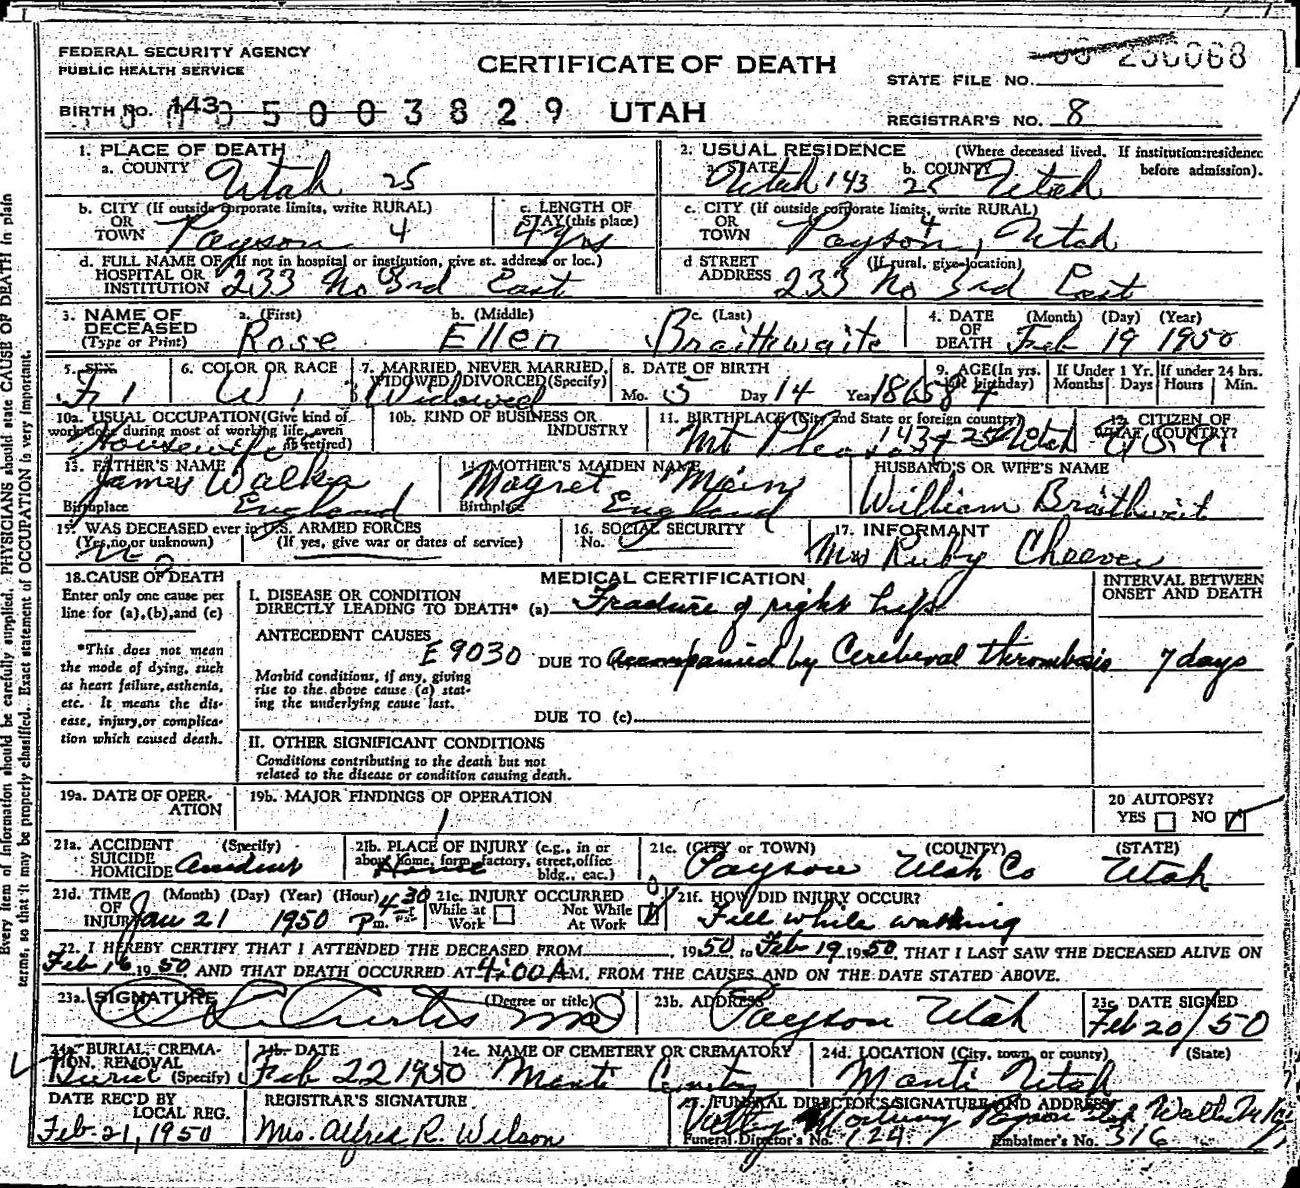 FEDERAL SECURITY AGENCY
PUBLIC HEALTH SERVICE
CERTIFICATE OF DEATH
STATE FILE NO.
BIRTH No. 143 5 0 0 3 8 2 9 UTAH
REGISTRAR'S NO. 8
1. PLACE OF DEATH
a. COUNTY Utah 25
2. USUAL RESIDENCE (Where deceased lived. If institution:residence before admission).
a. STATE Utah 143 25 b. COUNTY Utah
b. CITY (If outside corporate limits, write RURAL) OR TOWN Payson 4
c. LENGTH OF STAY (this place) 4 yrs
c. CITY (If outside corporate limits, write RURAL) OR TOWN Payson, 4 Utah
d. FULL NAME OF (If not in hospital or institution, give st. address or loc.) HOSPITAL OR INSTITUTION 233 No 3rd East
d STREET ADDRESS (If rural, give location) 233 No 3rd East
3. NAME OF DECEASED (Type or Print)
a. (First) Rose
b. (Middle) Ellen
c. (Last) Braithwaite
4. DATE OF DEATH (Month) (Day) (Year) Feb 19 1950
5. SEX F 1
6. COLOR OR RACE W 1
7. MARRIED, NEVER MARRIED, WIDOWED, DIVORCED (Specify) 3 Widowed
8. DATE OF BIRTH Mo. 5 Day 14 Year 1865
9. AGE (In yrs. last birthday) 84
If Under 1 Yr. Months Days
If under 24 hrs. Hours Min.
10a. USUAL OCCUPATION (Give kind of work done during most of working life, even if retired) Housewife
10b. KIND OF BUSINESS OR INDUSTRY
11. BIRTHPLACE (City and State or foreign country) Mt Pleasant Utah
12. CITIZEN OF WHAT COUNTRY? U.S.A.
13. FATHER'S NAME James Walker
Birthplace England
14. MOTHER'S MAIDEN NAME Magret Main
Birthplace England
HUSBAND'S OR WIFE'S NAME
William Braithwait
15. WAS DECEASED ever in U.S. ARMED FORCES (Yes, no, or unknown) No (If yes, give war or dates of service)
16. SOCIAL SECURITY No.
17. INFORMANT
Mrs Ruby Cheever
18. CAUSE OF DEATH
Enter only one cause per line for (a), (b), and (c)
*This does not mean the mode of dying, such as heart failure, asthenia, etc. It means the disease, injury, or complication which caused death.
MEDICAL CERTIFICATION
INTERVAL BETWEEN ONSET AND DEATH
I. DISEASE OR CONDITION DIRECTLY LEADING TO DEATH* (a) Fracture of right hip
ANTECEDENT CAUSES E9030
DUE TO Accompanied by Cerebral thrombosis 7 days
Morbid conditions, if any, giving rise to the above cause (a) stating the underlying cause last.
DUE TO (c)
II. OTHER SIGNIFICANT CONDITIONS
Conditions contributing to the death but not related to the disease or condition causing death.
19a. DATE OF OPERATION
19b. MAJOR FINDINGS OF OPERATION
20 AUTOPSY? YES NO
21a. ACCIDENT SUICIDE HOMICIDE (Specify) Accident
21b. PLACE OF INJURY (e.g., in or about home, farm, factory, street, office bldg., etc.) House
21c. (CITY or TOWN) (COUNTY) (STATE)
Payson Utah Co Utah
21d. TIME OF INJURY (Month) (Day) (Year) (Hour) Jan 21 1950 4-30 Pm.
21e. INJURY OCCURRED While at Work Not While At Work
21f. HOW DID INJURY OCCUR?
Fell while walking
22. I HEREBY CERTIFY THAT I ATTENDED THE DECEASED FROM 1950, to Feb 19 1950, THAT I LAST SAW THE DECEASED ALIVE ON
Feb 16 1950 AND THAT DEATH OCCURRED AT 4:00 A M, FROM THE CAUSES AND ON THE DATE STATED ABOVE.
23a. SIGNATURE (Degree or title) Curtis MD
23b. ADDRESS Payson Utah
23c. DATE SIGNED Feb 20/50
24a. BURIAL, CREMATION, REMOVAL (Specify) Burial
24b. DATE Feb 22 1950
24c. NAME OF CEMETERY OR CREMATORY Manti Cemetery
24d. LOCATION (City, town, or county) (State) Manti Utah
DATE REC'D BY LOCAL REG. Feb. 21, 1950
REGISTRAR'S SIGNATURE
Mrs. Alfred R. Wilson
25. FUNERAL DIRECTOR'S SIGNATURE AND ADDRESS
Valley Mortuary Payson
Funeral Director's No. 124 Embalmer's No. 316
Every item of information should be carefully supplied. PHYSICIANS should state CAUSE OF DEATH in plain
terms, so that it may be properly classified. Exact statement of OCCUPATION is very important.